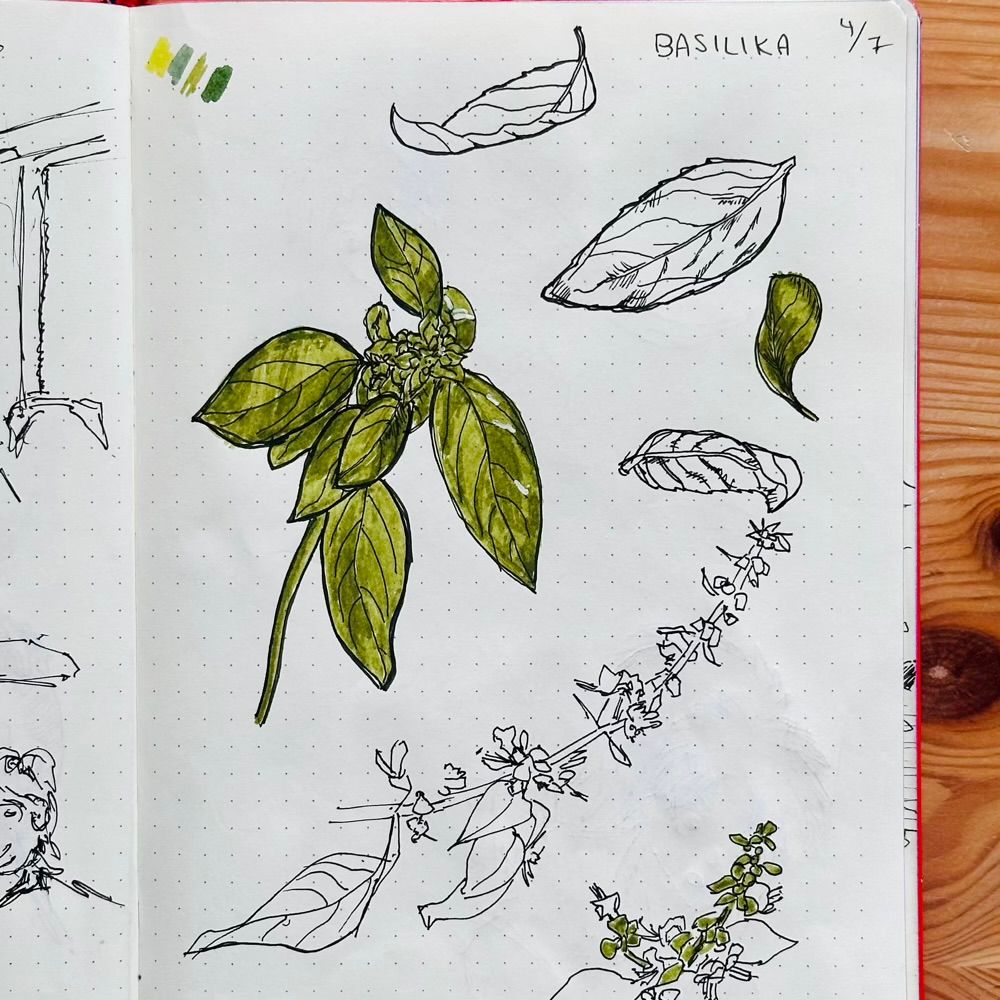 BASILIKA 4/7